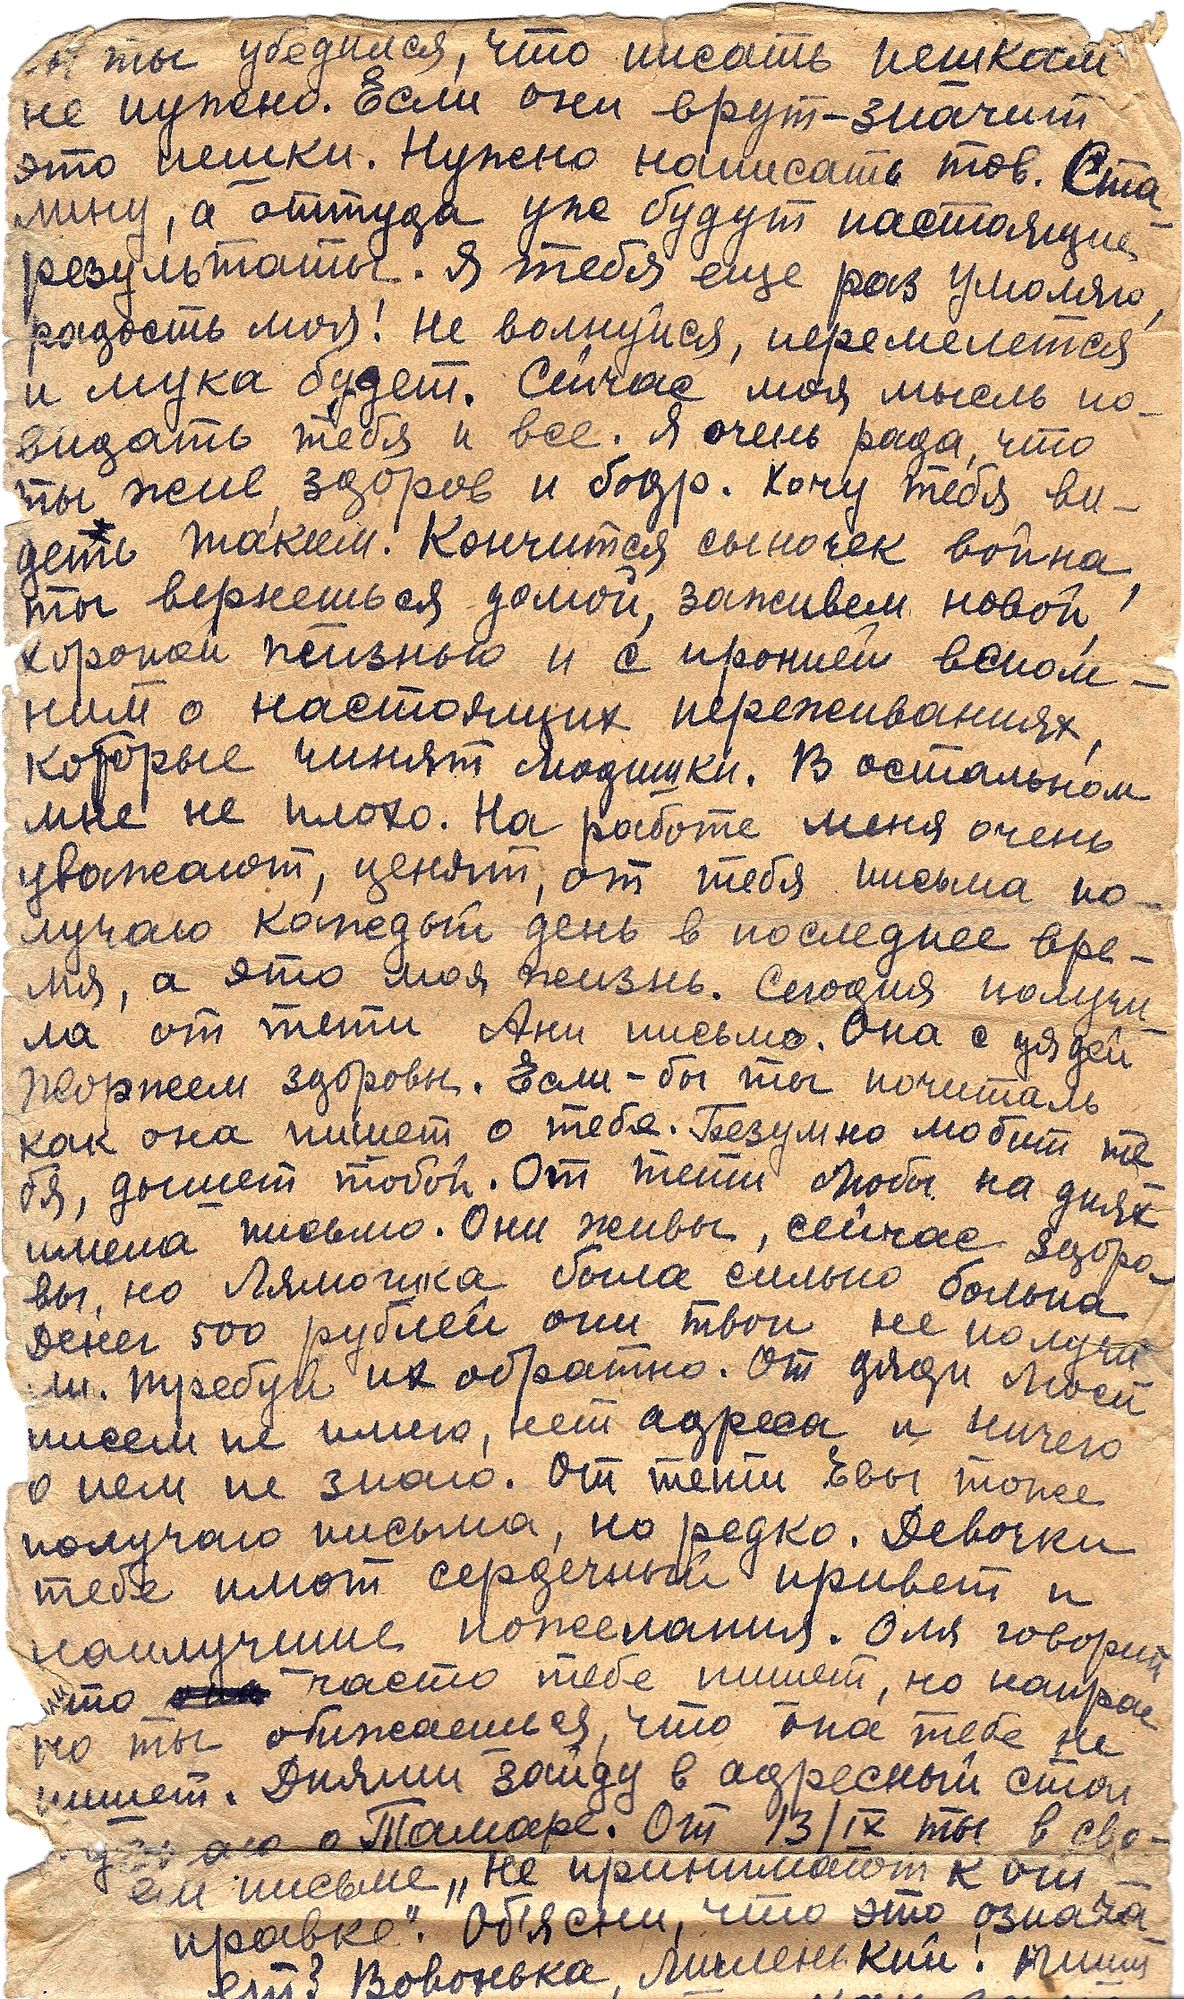 ты убедился, что писать пешкам
не нужно. Если они врут-значит
это пешки. Нужно написать тов. Ста-
лину, а оттуда уже будут настоящие
результаты. Я тебя еще раз умоляю,
радость моя! Не волнуйся, перемелется
и мука будет. Сейчас моя мысль по-
видать тебя и все. Я очень рада, что
ты жив, здоров и бодр. Хочу тебя ви-
деть таким. Кончится сыночек война,
ты вернешься домой, заживем новой,
хорошей жизнью и с иронией вспом-
ним о настоящих переживаниях,
которые чинят людишки. В остальном
мне не плохо. На работе меня очень
уважают, ценят, от тебя письма по-
лучаю каждый день в последнее вре-
мя, а это моя жизнь. Сегодня получи-
ла от тети Ани письмо. Она с дядей
Жоржем здоровы. Если-бы ты почитал
как она пишет о тебе. Безумно любит те
бя, дышет тобой. От тети Любы на днях
имела письмо. Они живы, сейчас здоро-
вы, но Лямочка была сильно больна
Денег 500 рублей они твои не получи
ли. Требуй их обратно. От дяди Люси
писем не имею, нет адреса и ничего
о нем не знаю. От тети Евы тоже
получаю письма, но редко. Девочки
тебе шлют сердечный привет и
наилучшие пожелания. Оля говорит
что часто тебе пишет, но напрас
но ты обижаешься, что она тебе не
пишет. Днями зайду в адресный стол
узнаю о Тамаре. От 13/IX ты в сво-
ем письме „Не принимают к отп
равке". Объясни, что это означа
ет? Вовонька, миленький! Пиши